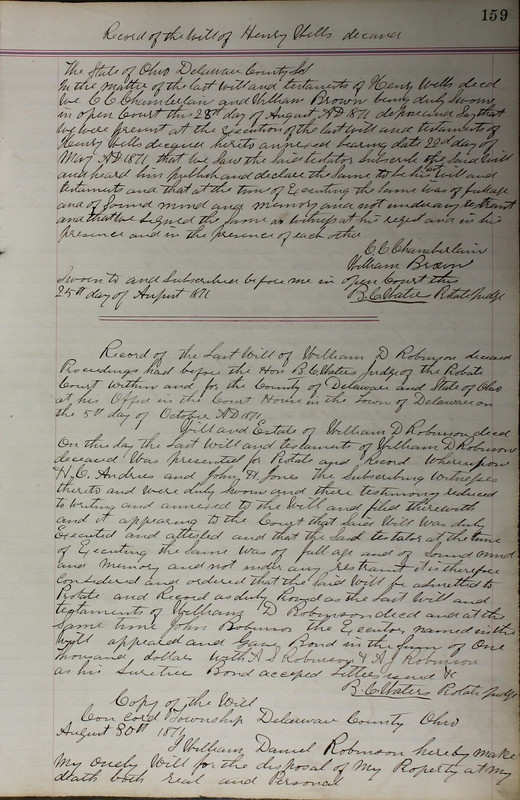 159
Record of the Will of Henry Wells deceased
The State of Ohio Delaware County SS
In the matter of the last will and testament of Henry Wells decd
We C C Chamberlain and William Brown being duly sworn
in open Court this 28th day of August AD 1871 depose and say that
we were present at the Execution of the last will and testament of
Henry Wells deceased hereto annexed bearing date 22d day of
May AD 1871 that we saw the said testator subscribe the said will
and heard him publish and declare the same to be his last will and
testament and that at the time of Executing the same was of full age
and of sound mind and memory and not under any restraint
and that we signed the same as witness at his request and in his
presence and in the presence of each other
C C Chamberlain
William Brown
Sworn to and Subscribed before me in open Court this
25th day of August 1871 B. C. Waters Probate Judge
Record of the Last Will of William D Robinson deceased
Proceedings had before the Hon B. C. Waters Judge of the Probate
Court within and for the County of Delaware and State of Ohio
at his Office in the Court House in the Town of Delaware on
the 5th day of October AD 1871
Will and Estate of William D Robinson decd
On this day the Last Will and testament of William D Robinson
deceased Was presented for Probate and Record Whereupon
H. C. Andrews and John H Jones the Subscribing Witnesses
thereto and were duly sworn and there testimony reduced
to writing and annexed to the Will and filed therewith
and it appearing to the Court that Said Will Was duly
Executed and attested and that the Said testator at the time
of Executing the Same Was of full age and of Sound mind
and Memory and not under any restraint it is therefore
Considered and ordered that the Said Will be admitted to
Probate and Record as the Last Will and
testament of William D Robinson decd and at the
Same time John Robinson the Executor named in the
Will appeared and Gave Bond in the Sum of One
thousand dollars with A S Robinson & A J Robinson
as his Sureties Bond accepted Letters issued &c
B. C. Waters Probate Judge
Copy of the Will
Concord Township Delaware County Ohio
August 30th 1871
I William Daniel Robinson hereby make
My Will for the disposal of My Property at My
death both real and Personal